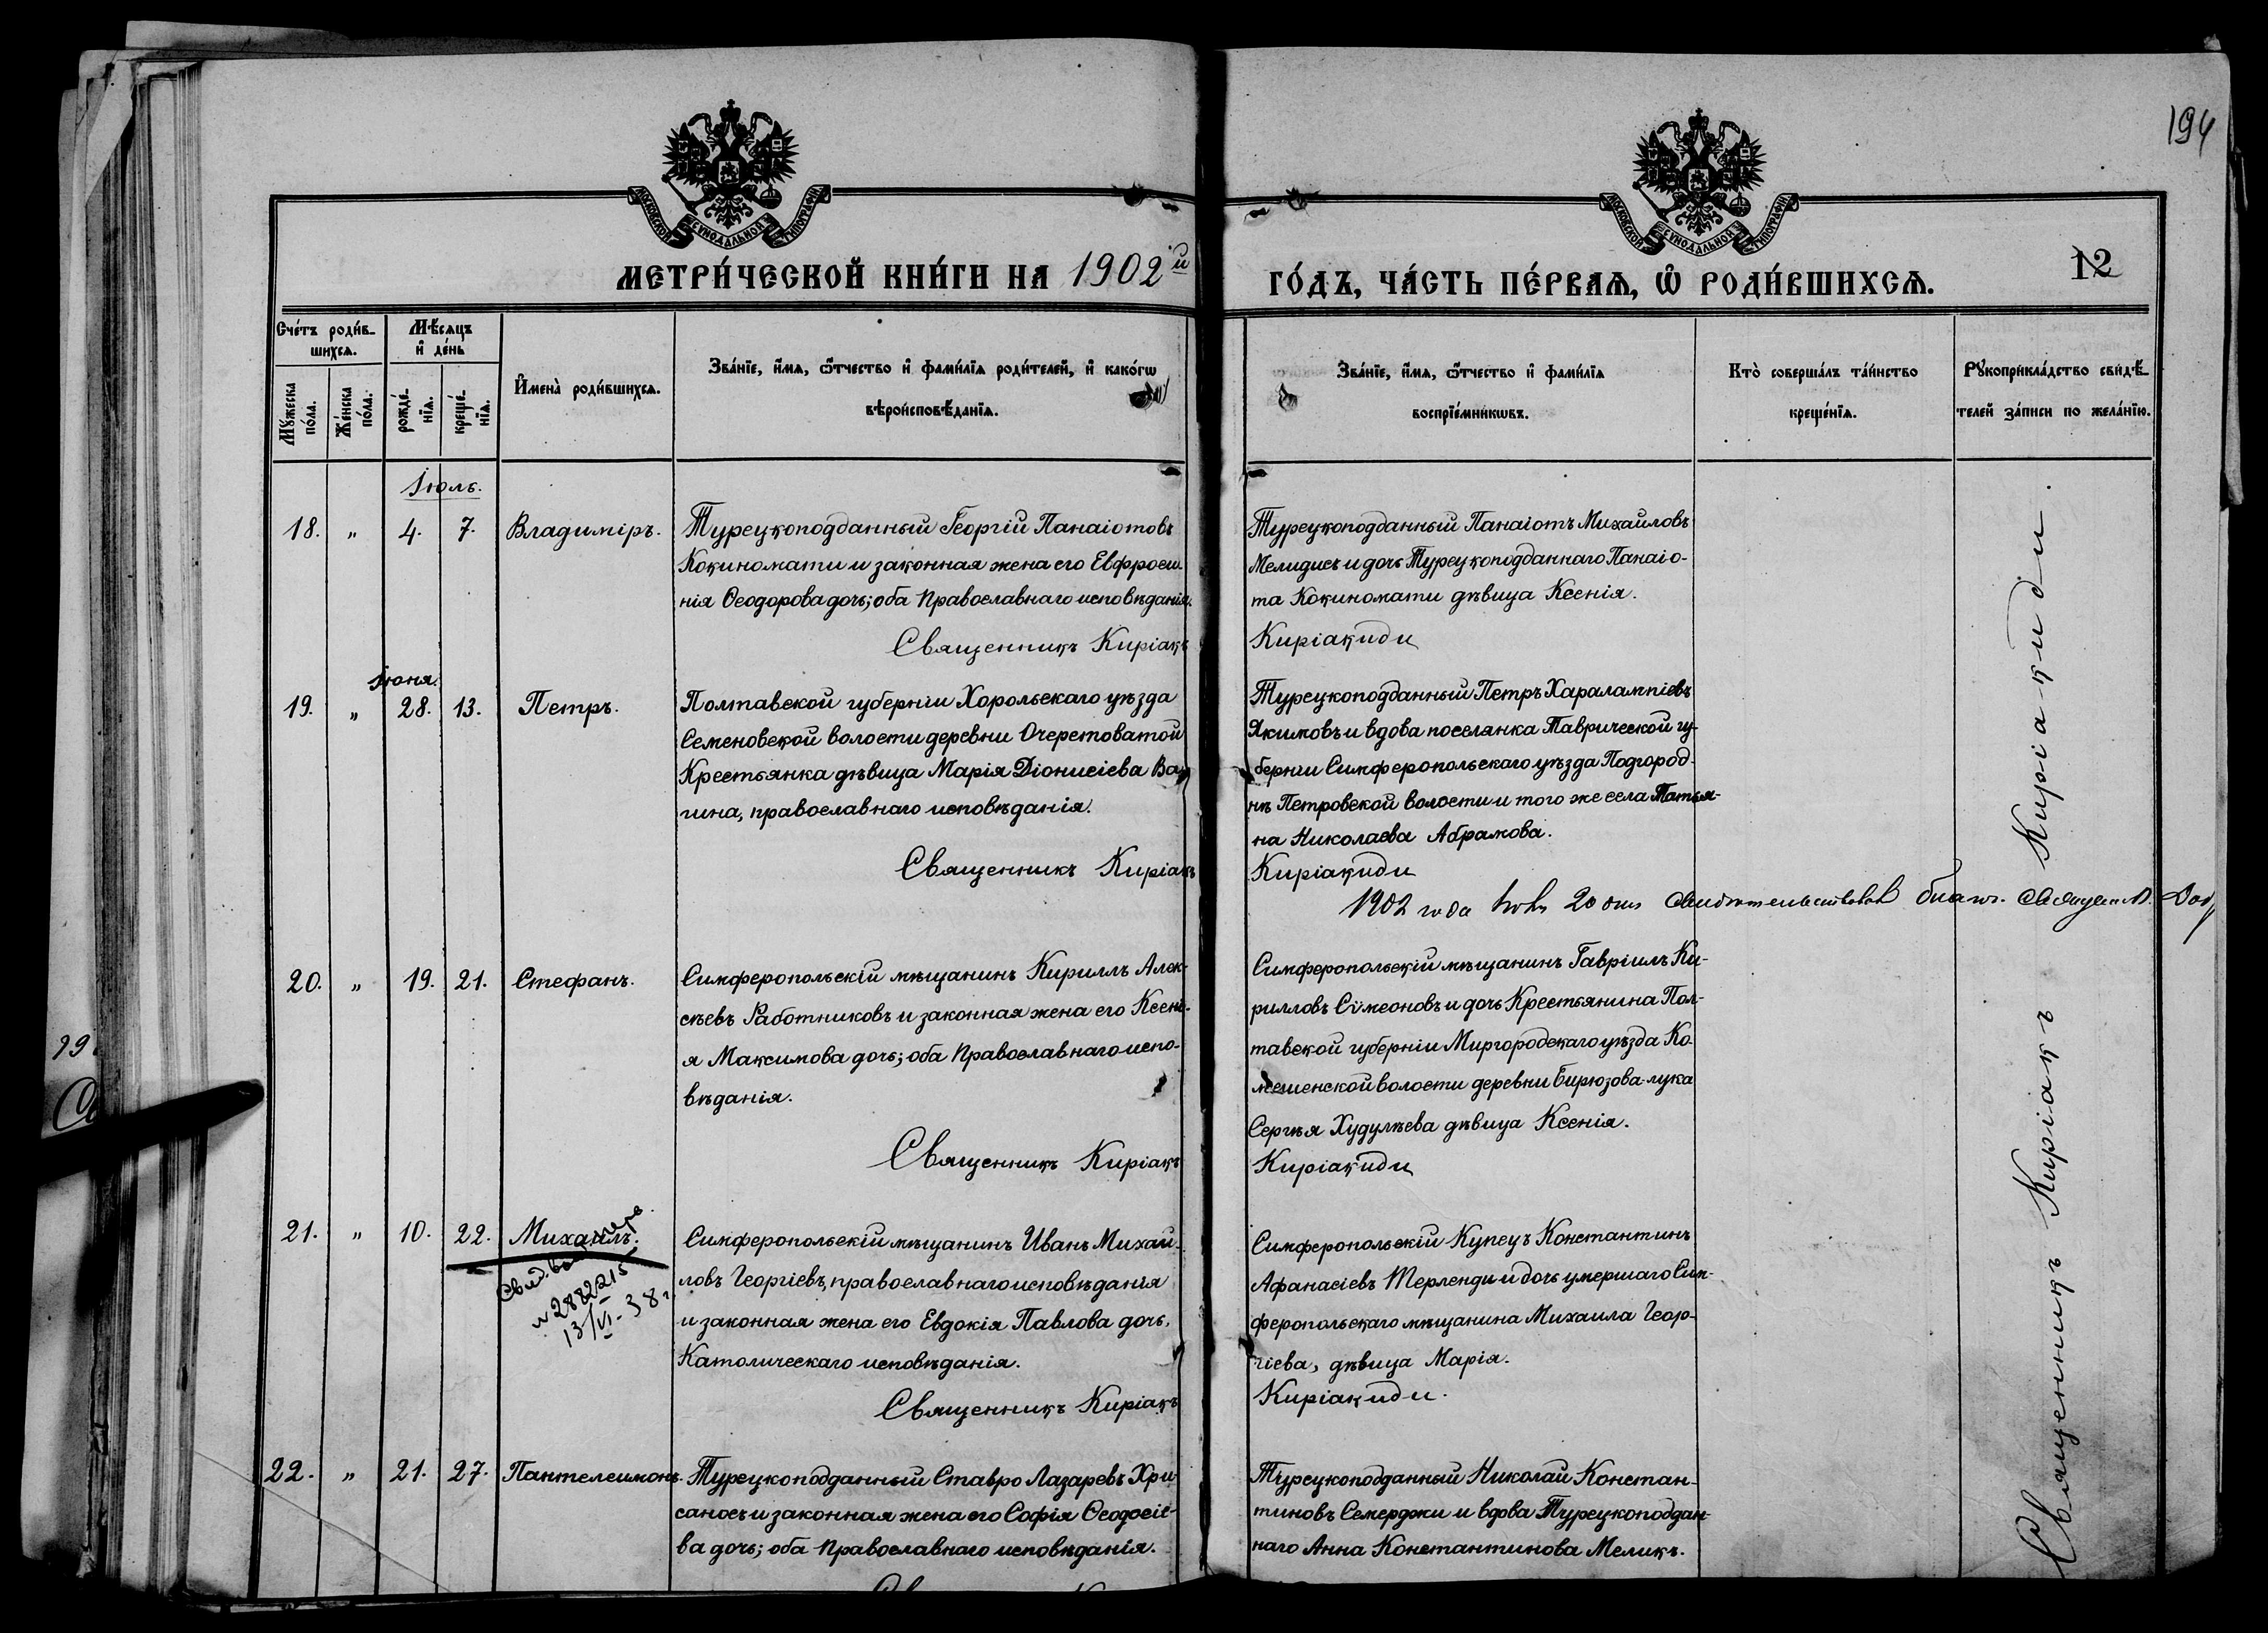 194
МОСКОВСКОЙ СѴНОДАЛЬНОЙ ТИПОГРАФІИ
МОСКОВСКОЙ СѴНОДАЛЬНОЙ ТИПОГРАФІИ
МЕТРИ́ЧЕСКОЙ КНИ́ГИ НА 1902й
ГО́ДЪ, ЧА́СТЬ ПЕ́РВАѦ, Ѡ РОДИ́ВШИХСѦ.
12
Сче́тъ роди́в-
шихсѧ.
Мꙋжеска по́ла.
Же́нска по́ла.
Мѣ́сѧцъ
и҆ де́нь
рожде́-
нїѧ.
креще́-
нїѧ.
И҆мена̀ роди́вшихсѧ.
Зва́нїе, и҆́мѧ, ѻ҆́тчество и҆ фами́лїѧ роди́телей, и҆ како́гѡ
вѣроисповѣ́данїѧ.
Зва́нїе, и҆́мѧ, ѻ҆́тчество и҆ фами́лїѧ
воспрїе́мникѡвъ.
Кто̀ соверша́лъ та́инство
креще́нїѧ.
Рꙋкоприкла́дство свидѣ́-
телей за́писи по жела́нїю.
Іюль.
18. " 4. 7. Владиміръ.
Турецкоподданный Георгій Панаіотовъ
Кокиномати и законная жена его Евфроси-
нія Ѳеодорова дочь; оба Православнаго исповѣданія.
Священникъ Киріакъ
Турецкоподданный Панаіотъ Михайловъ
Мелидисъ и дочь Турецкоподданнаго Панаіо-
та Кокиномати дѣвица Ксенія.
Киріакиди
Іюня.
19. " 28. 13. Петръ.
Полтавской губерніи Хорольскаго уѣзда
Семеновской волости деревни Очеретоватой
Крестьянка дѣвица Марія Діонисіева
гина, православнаго исповѣданія.
Священникъ Киріакъ
Турецкоподданный Петръ Харалампіевъ
Якимовъ и вдова поселянка Таврической гу-
берніи Симферопольскаго уѣзда Подгород-
нѣ Петровской волости и того же села Татья-
на Николаева Абрамова.
Киріакиди
1902 года 20 дня свидѣтельствовалъ благ. Священ.
20. " 19. 21. Стефанъ.
Симферопольскій мѣщанинъ Кириллъ Алек-
сѣевъ Работниковъ и законная жена его Ксені-
я Максимова дочь; оба Православнаго испо-
вѣданія.
Священникъ Киріакъ
Симферопольскій мѣщанинъ Гавріилъ Ки-
рилловъ Сѵмеоновъ и дочь Крестьянина Пол-
тавской губерніи Миргородскаго уѣзда Ко-
мешенской волости деревни Бирюзова-лука
Сергѣя Худулѣева дѣвица Ксенія.
Киріакиди
21. " 10. 22. Михаилъ.
Свид.
№ 2882215
13/VI-38 г.
Симферопольскій мѣщанинъ Иванъ Михай-
ловъ Георгіевъ, православнаго исповѣданія
и законная жена его Евдокія Павлова дочь,
Католическаго исповѣданія.
Священникъ Киріакъ
Симферопольскій Купецъ Константинъ
Афанасіевъ Терленди и дочь умершаго Сим-
феропольскаго мѣщанина Михаила Геор-
гіева, дѣвица Марія.
Киріакиди.
22. " 21. 27. Пантелеимонъ.
Турецкоподданный Ставро Лазаревъ Хри
саносъ и законная жена его Софія Ѳеодосіе-
ва дочь; оба Православнаго исповѣданія.
Турецкоподданный Николай Констан-
тиновъ Семерджи и вдова Турецкоподдан-
наго Анна Константинова Меликъ.
Священникъ Киріакъ Киріакиди.